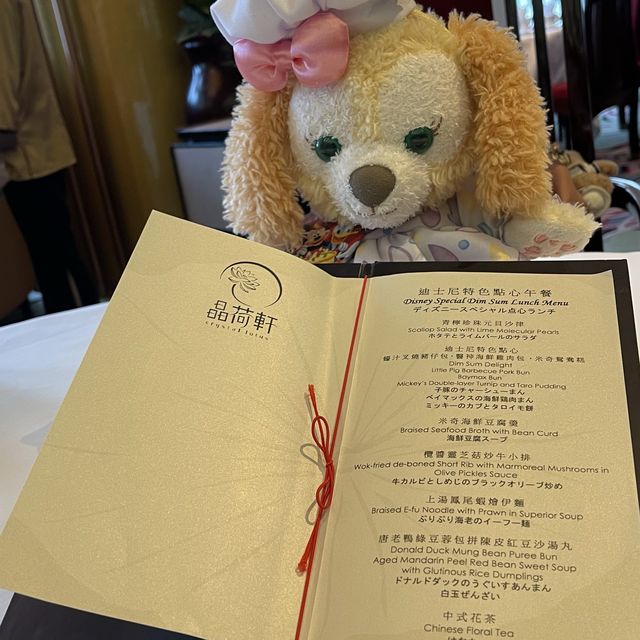 晶荷軒
crystal lotus
迪士尼特色點心午餐
Disney Special Dim Sum Lunch Menu
ディズニースペシャル点心ランチ
青檸珍珠元貝沙律
Scallop Salad with Lime Molecular Pearls
ホタテとライムパールのサラダ
迪士尼特色點心
蠔汁叉燒豬仔包・醫神海鮮雞肉包・米奇鴛鴦糕
Dim Sum Delight
Little Pig Barbecue Pork Bun
Baymax Bun
Mickey's Double-layer Turnip and Taro Pudding
子豚のチャーシューまん
ベイマックスの海鮮鶏肉まん
ミッキーのカブとタロイモ餅
米奇海鮮豆腐羹
Braised Seafood Broth with Bean Curd
海鮮豆腐スープ
欖醬靈芝菇炒牛小排
Wok-fried de-boned Short Rib with Marmoreal Mushrooms in
Olive Pickles Sauce
牛カルビとしめじのブラックオリーブ炒め
上湯鳳尾蝦燴伊麵
Braised E-fu Noodle with Prawn in Superior Soup
ぷりぷり海老のイーフー麺
唐老鴨綠豆蓉包拼陳皮紅豆沙湯丸
Donald Duck Mung Bean Puree Bun
Aged Mandarin Peel Red Bean Sweet Soup
with Glutinous Rice Dumplings
ドナルドダックのうぐいすあんまん
白玉ぜんざい
中式花茶
Chinese Floral Tea